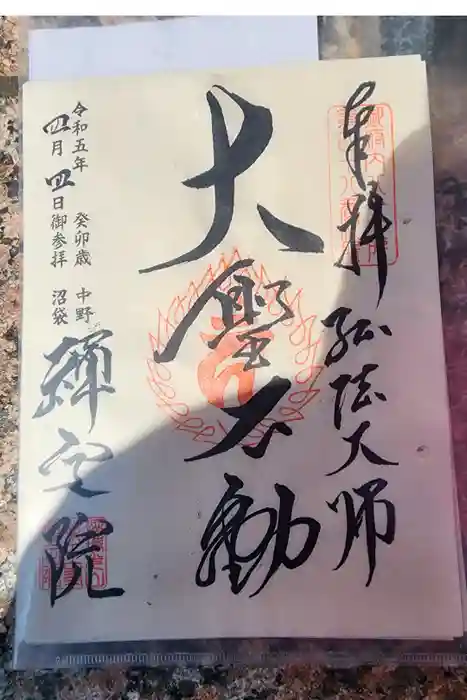 奉拝 弘法大師
大聖不動
令和五年 癸卯歳 中野
四月四日御参拝 沼袋
禅定院